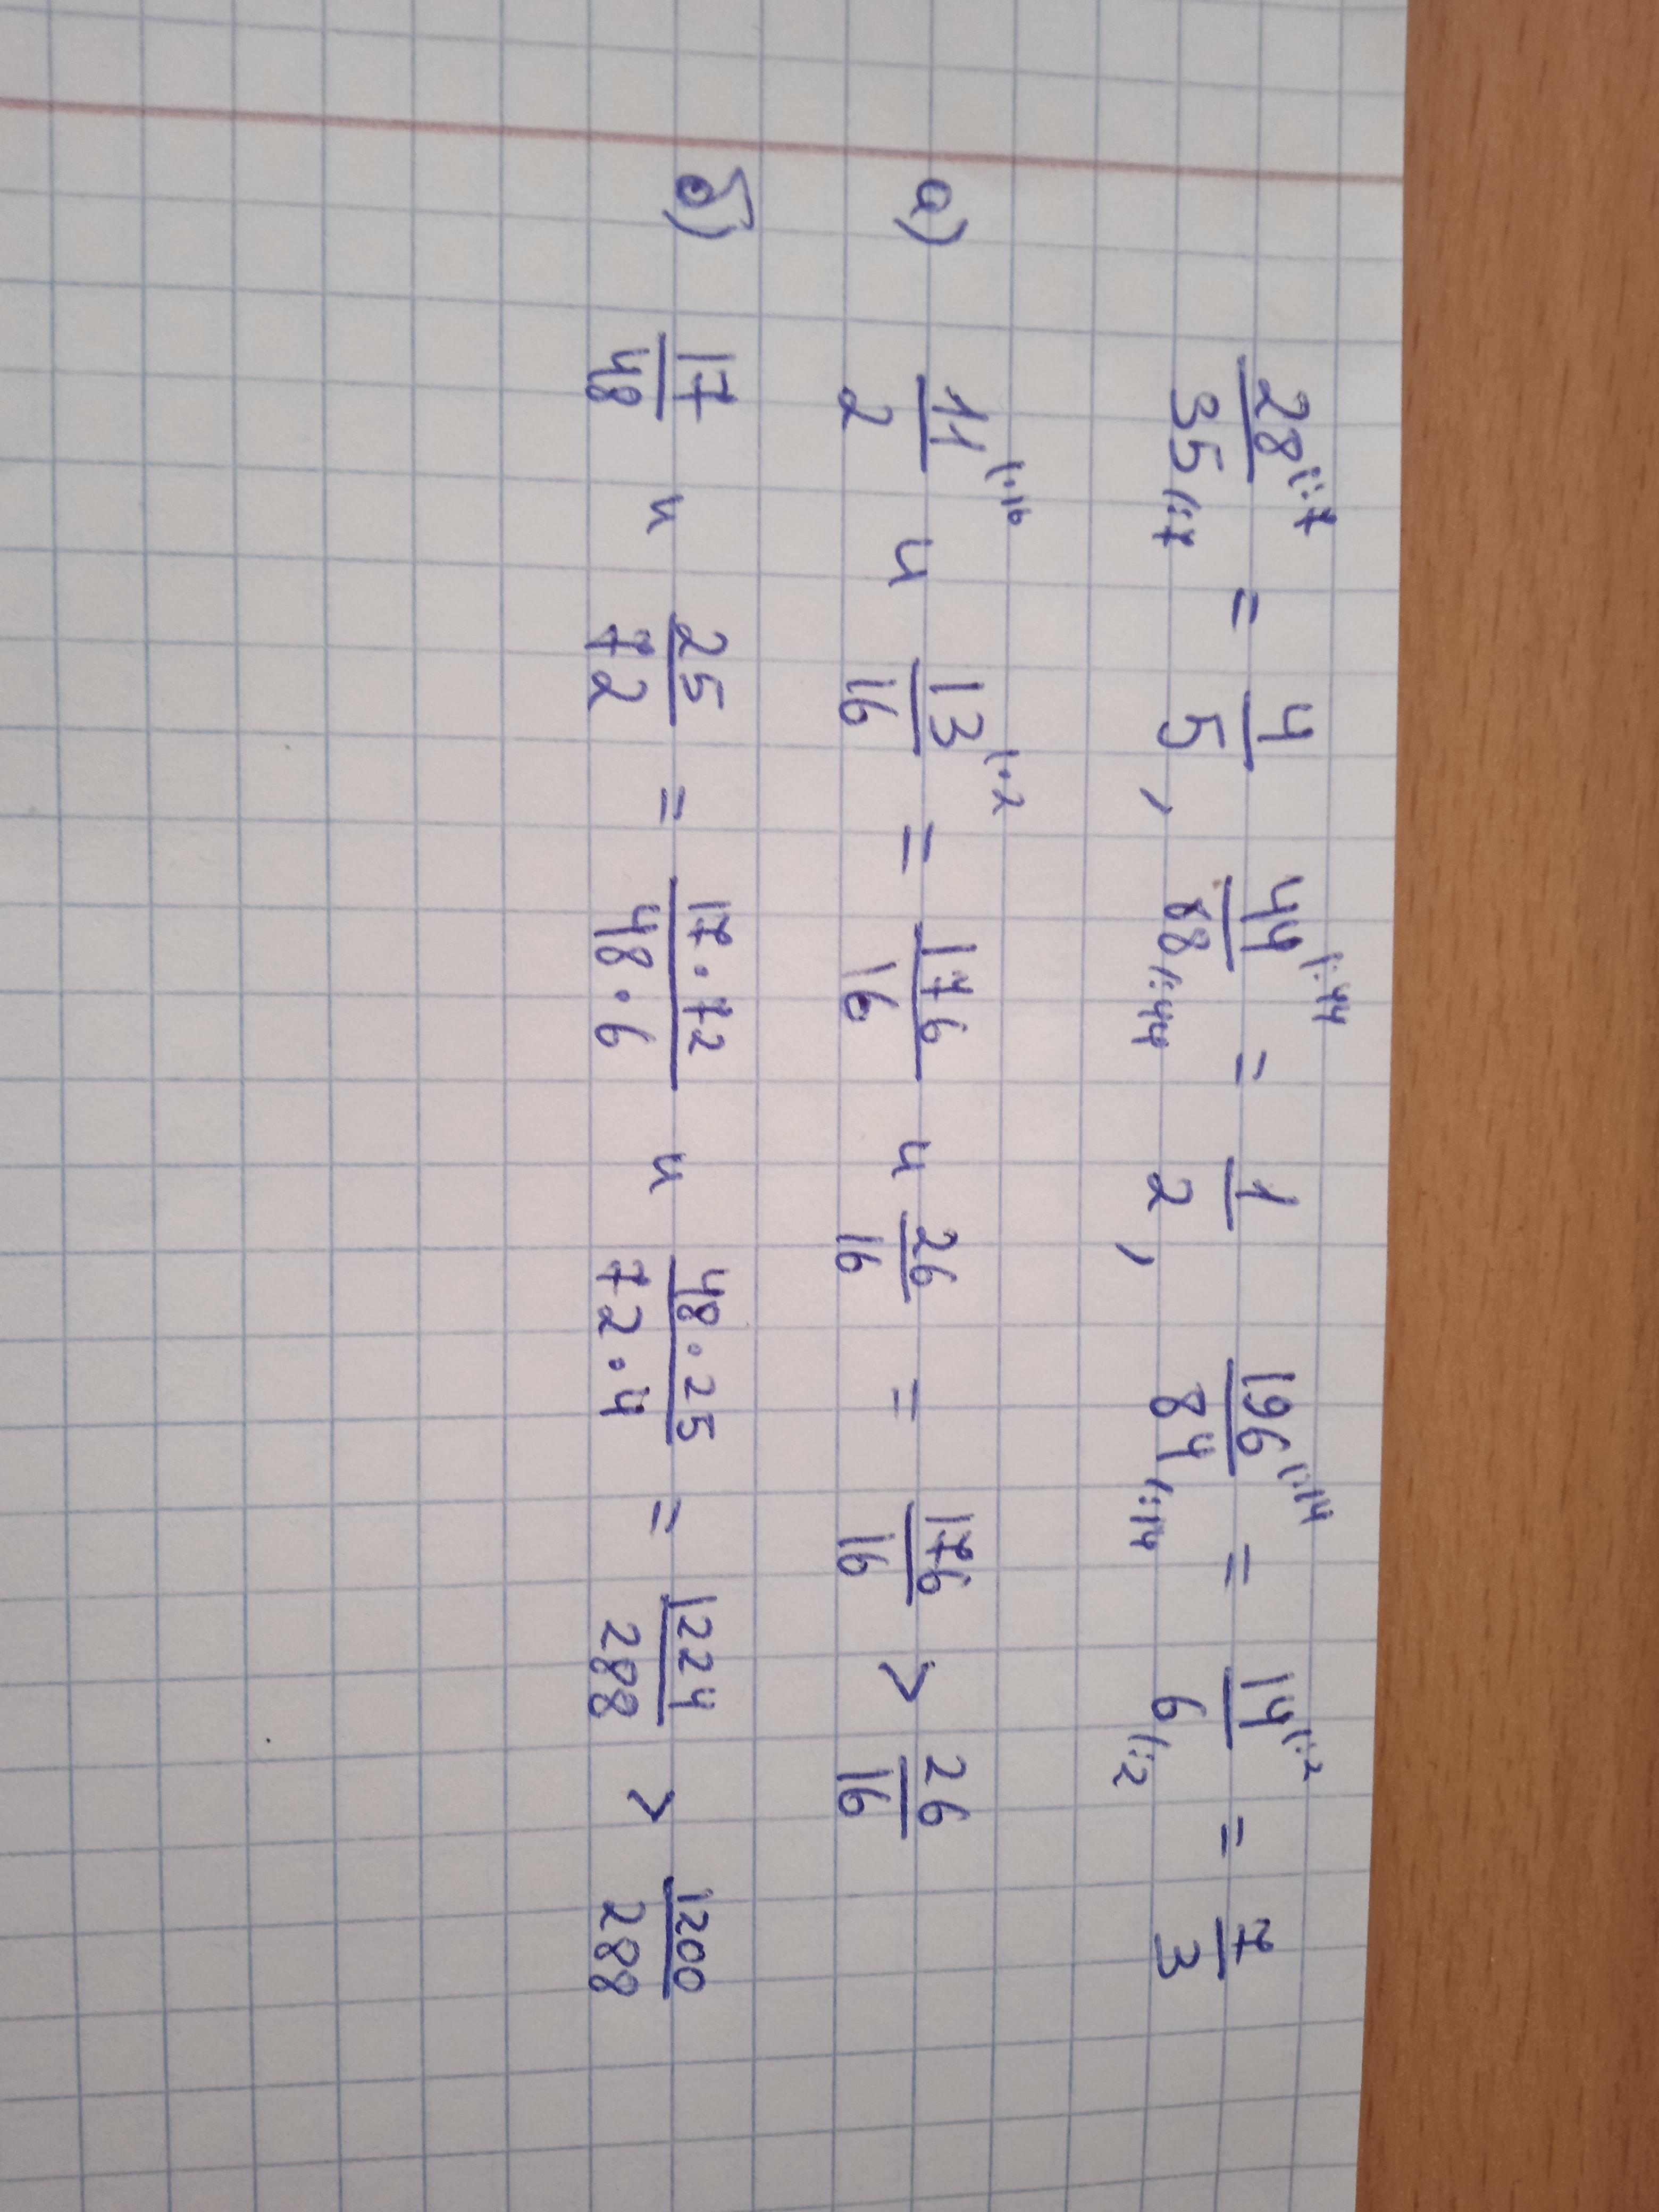 28|:7/35|:7 = 4/5, 44|:44/88|:44 = 1/2, 196|:14/84|:14 = 14|:2/6|:2 = 7/3
а) 11|·16/2 и 13|·2/16 = 176/16 и 26/16 = 176/16 > 26/16
б) 17/48 и 25/72 = 17·72/48·6 и 48·25/72·4 = 1224/288 > 1200/288